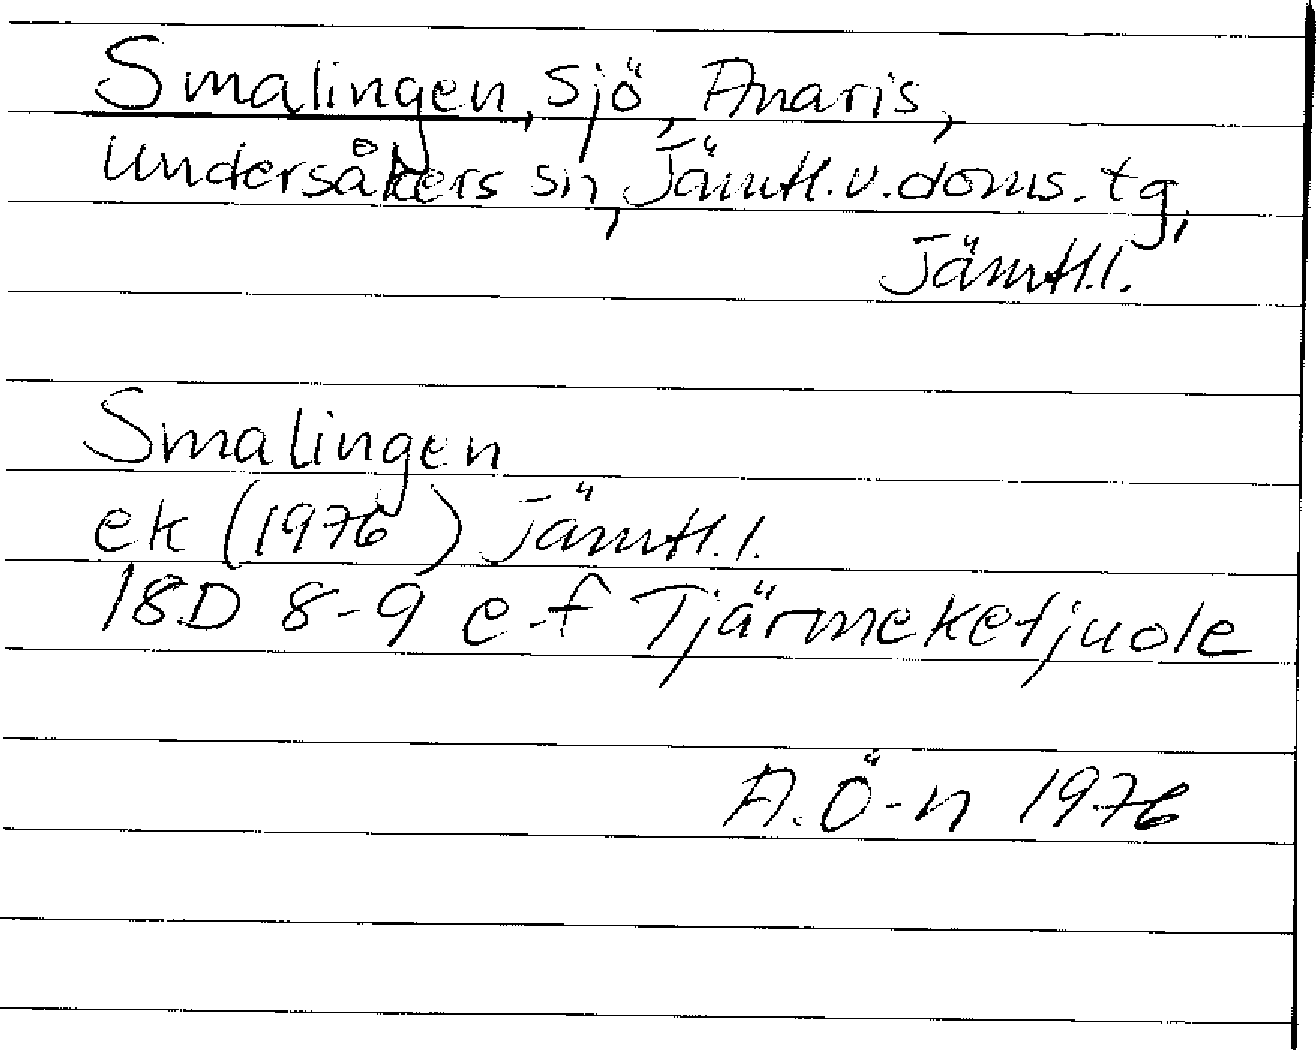 Smalingen, sjö, Anaris,
Undersåkers sn, Jämtl.v.doms.tg,
Jämtl.l.
Smalingen
ek (1976) Jämtl.l.
18D 8-9 e-f Tjärmeketjuole
A.Ö-n 1976